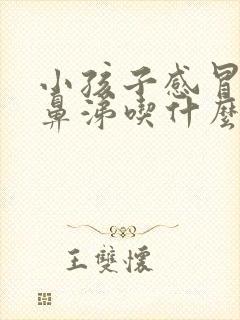 小孩子感冒
鼻涕喫什麼
王雙懷